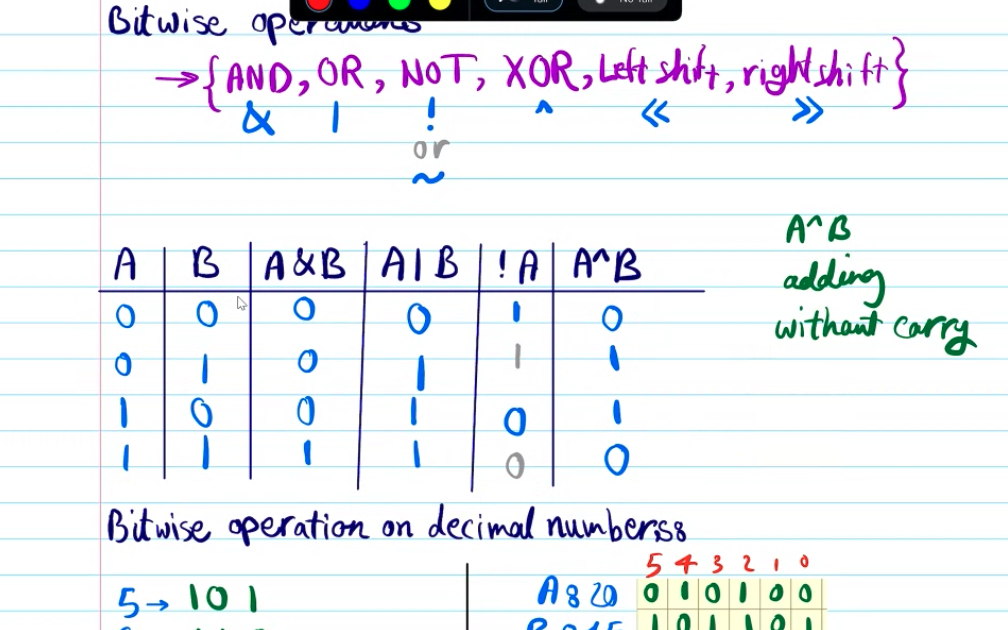 Bitwise operations
→{AND, OR, NOT, XOR, Left shift, right shift}
& | ! ^ << >>
or
~
A B A&B A|B !A A^B
0 0 0 0 1 0
0 1 0 1 1 1
1 0 0 1 0 1
1 1 1 1 0 0
A^B
adding
without carry
Bitwise operation on decimal numberss8
5 → 101
5 4 3 2 1 0
A 8 20 0 1 0 1 0 0